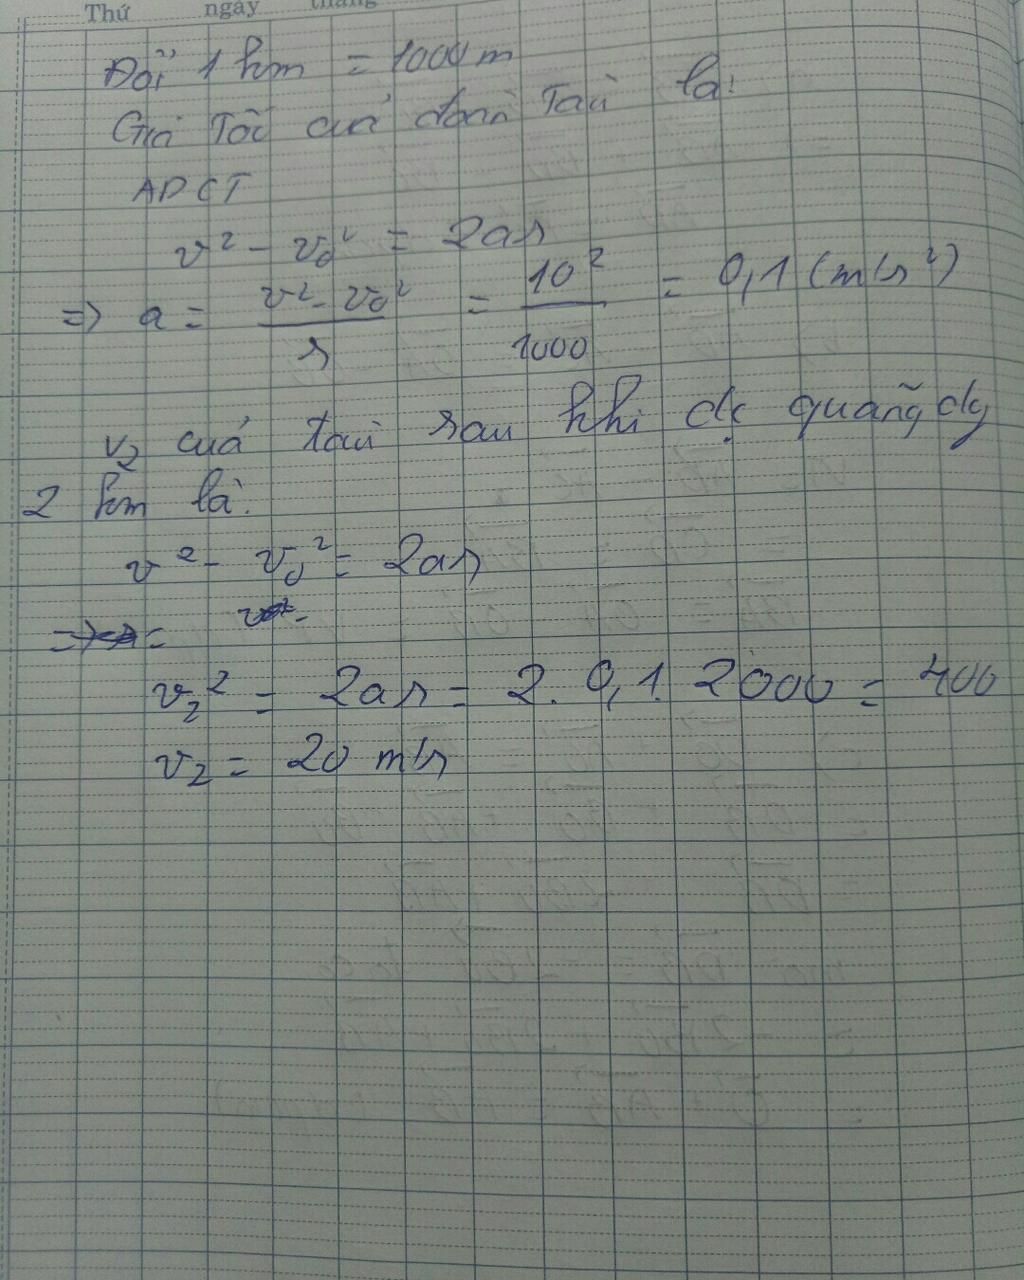 Thứ ngày tháng
Đổi 1 km = 1000 m
Gia Tốc của đoàn Tàu là:
ADCT
v² - v₀² = 2as
=> a = (v² - v₀²)/s = 10²/1000 = 0,1 (m/s²)
v₂ của tàu sau khi đc quãng đg
2 km là:
v² - v₀² = 2as
v₂² = 2as = 2. 0,1. 2000 = 400
v₂ = 20 m/s